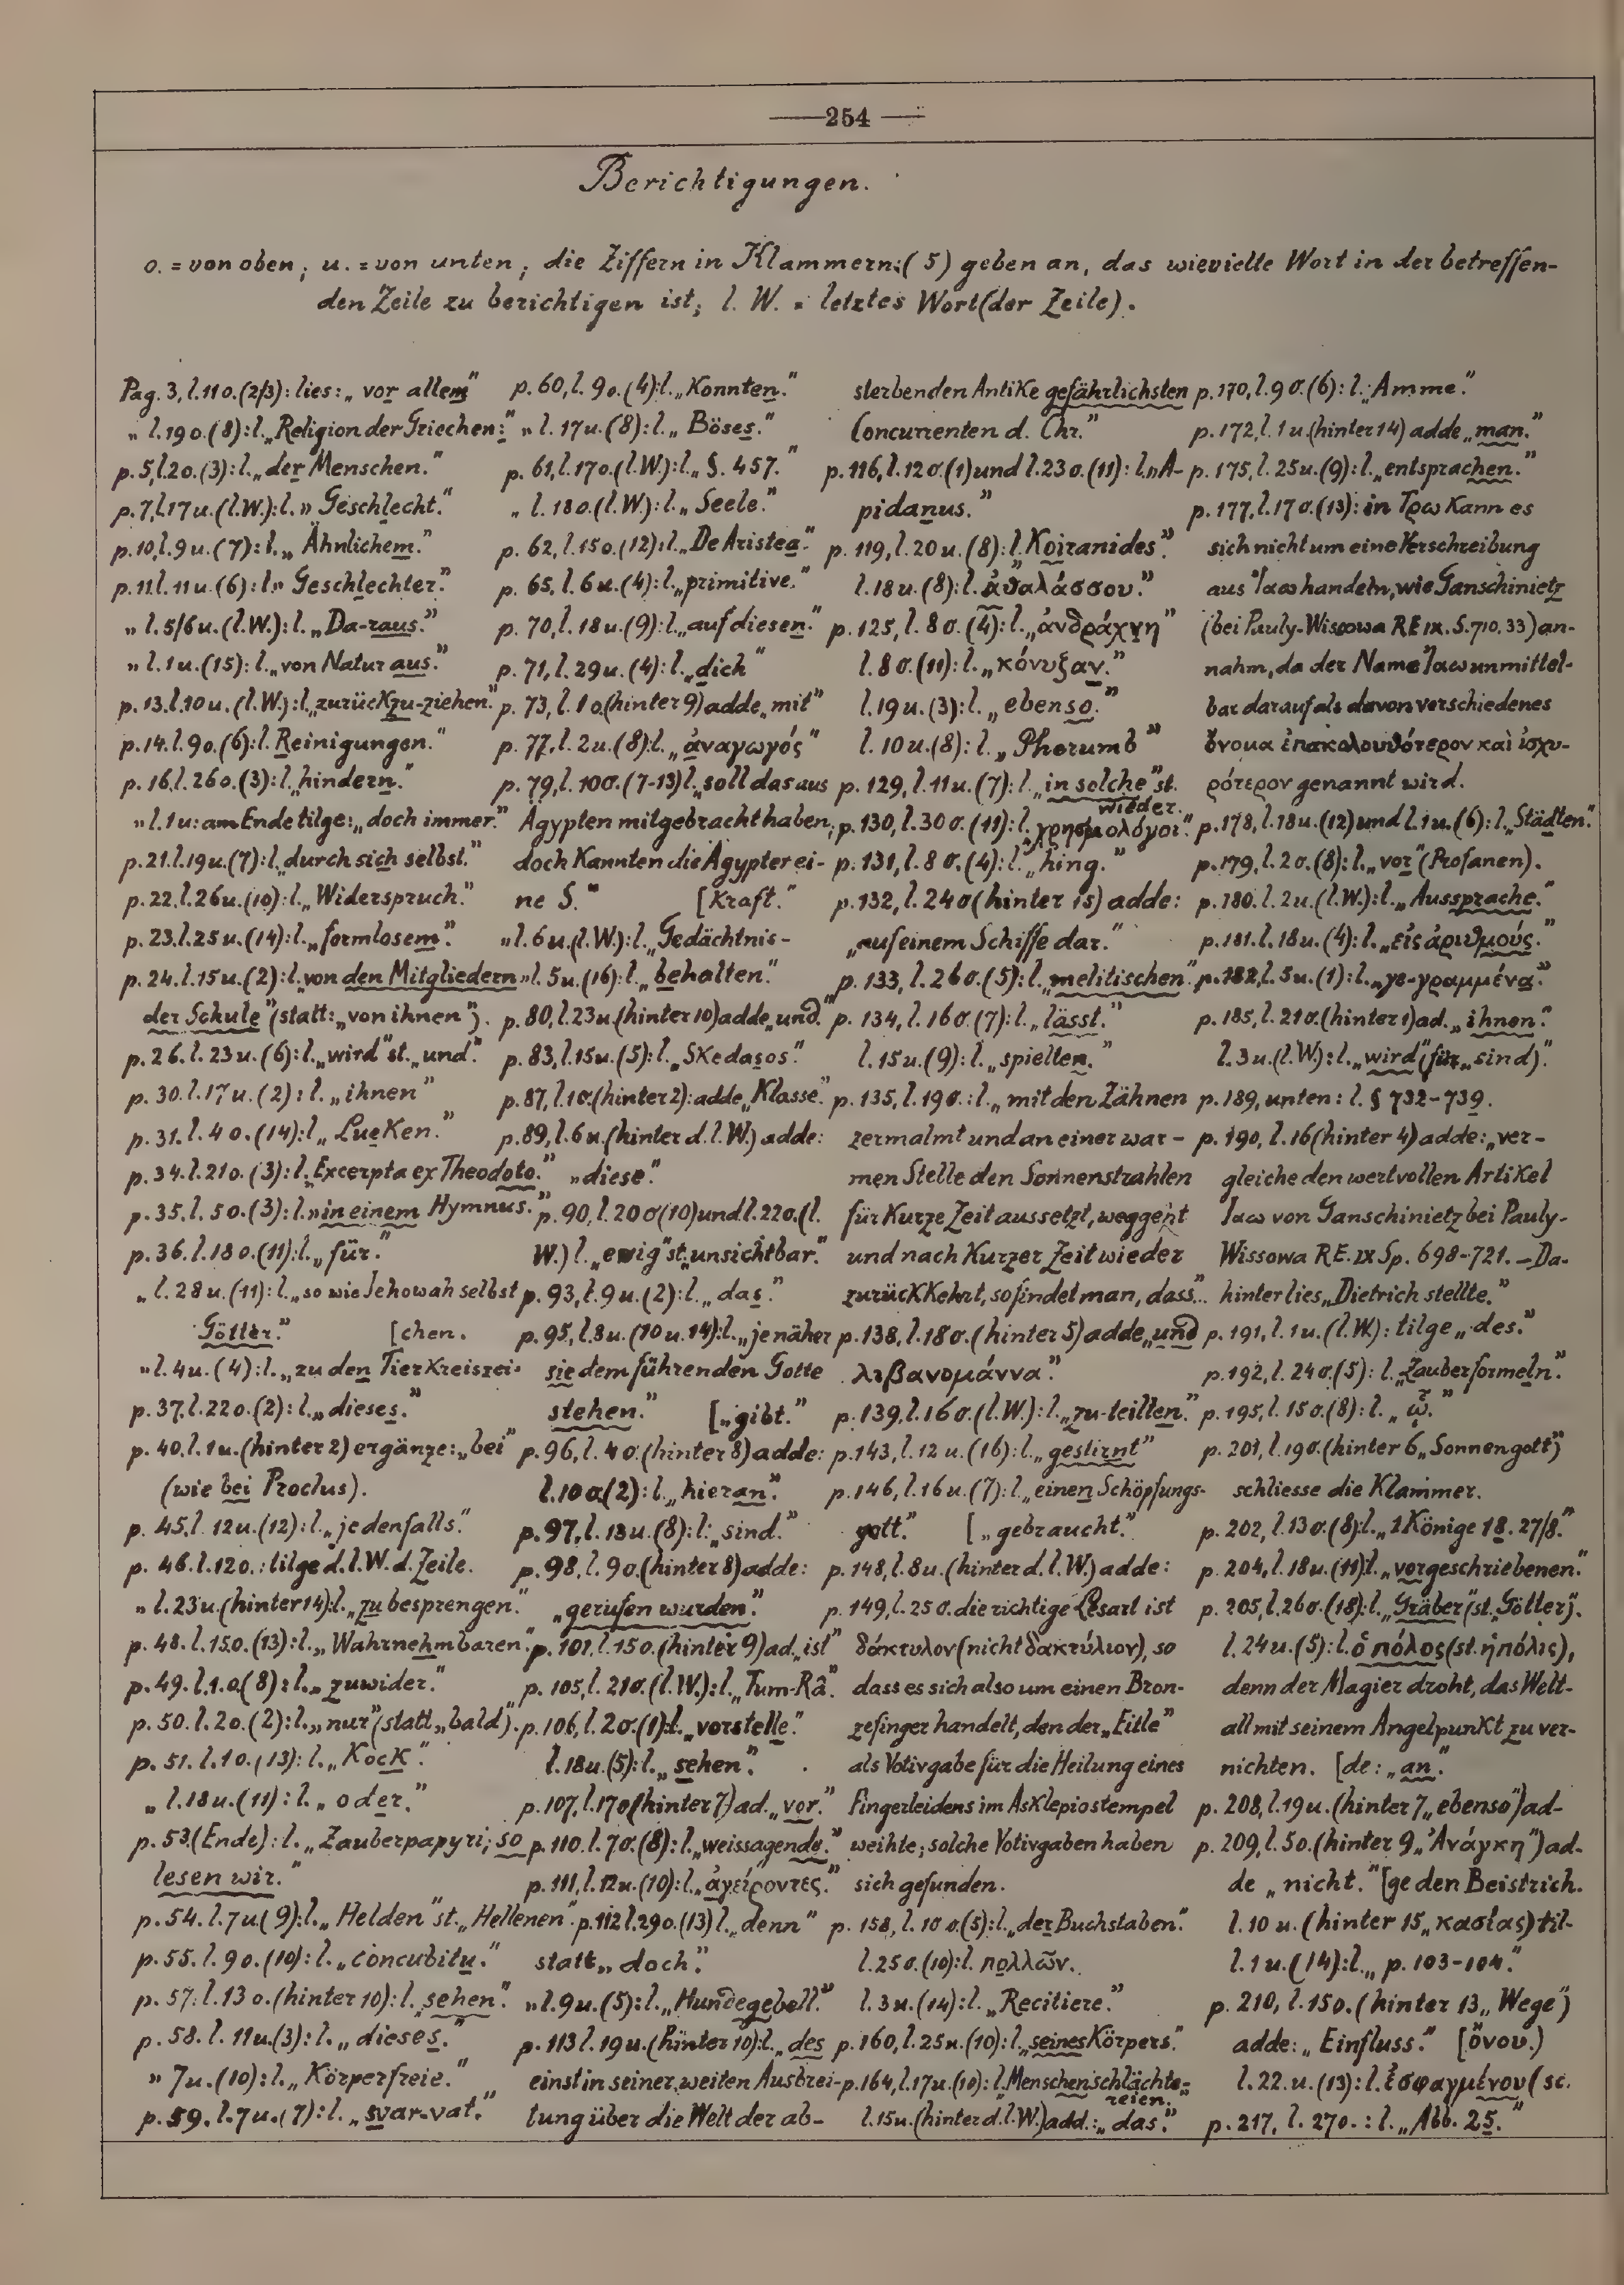 —254—
Berichtigungen.
o. = von oben; u. = von unten; die Ziffern in Klammern: (5) geben an, das wievielte Wort in der betreffen-
den Zeile zu berichtigen ist; l. W. = letztes Wort (der Zeile).
Pag. 3, l. 11 o. (2/3): lies: „vor allem"
„ l. 19 o. (8): l. „Religion der Griechen:"
p. 5, l. 2 o. (3): l. „der Menschen."
p. 7, l. 17 u. (l. W.): l. „Geschlecht."
p. 10, l. 9 u. (7): l. „Ähnlichem."
p. 11. l. 11 u. (6): l. „Geschlechter."
„ l. 5/6 u. (l. W.): l. „Da-raus."
„ l. 1 u. (15): l. „von Natur aus."
p. 13. l. 10 u. (l. W.): l. „zurückzu-ziehen."
p. 14. l. 9 o. (6): l. Reinigungen."
p. 16, l. 26 o. (3): l. „hindern."
„ l. 1 u: am Ende tilge: „doch immer."
p. 21. l. 19 u. (7): l. „durch sich selbst."
p. 22. l. 26 u. (10): l. „Widerspruch."
p. 23. l. 25 u. (14): l. „formlosem".
p. 24. l. 15 u. (2): l. „von den Mitgliedern
der Schule" (statt: „von ihnen").
p. 26. l. 23 u. (6): l. „wird" st. „und".
p. 30. l. 17 u. (2): l. „ihnen"
p. 31. l. 4 o. (14): l. „Lueken."
p. 34. l. 21 o. (3): l. „Excerpta ex Theodoto."
p. 35. l. 5 o. (3): l. „in einem Hymnus."
p. 36. l. 18 o. (11): l. „für."
„ l. 28 u. (11): l. „so wie Jehowah selbst
Götter." [chen.
„ l. 4 u. (4): l. „zu den Tierkreiszei-
p. 37, l. 22 o. (2): l. „dieses."
p. 40, l. 1 u. (hinter 2) ergänze: „bei"
(wie bei Proclus).
p. 45, l. 12 u. (12): l. „jedenfalls."
p. 46. l. 12 o.: tilge d. l. W. d. Zeile.
„ l. 23 u. (hinter 14): l. „zu besprengen."
p. 48. l. 15 o. (13): l. „Wahrnehmbaren."
p. 49. l. 1. o. (8): l. „zuwider."
p. 50. l. 2 o. (2): l. „nur" (statt „bald).
p. 51. l. 1 o. (13): l. „Kock".
„ l. 18 u. (11): l. „oder."
p. 53. (Ende): l. „Zauberpapyri; so
lesen wir."
p. 54. l. 7 u. (9): l. „Helden" st. „Hellenen".
p. 55. l. 9 o. (10): l. „concubitu."
p. 57. l. 13 o. (hinter 10): l. „sehen".
p. 58. l. 11 u. (3): l. „dieses."
„ 7 u. (10): l. „Körperfreie."
p. 59. l. 7 u. (7): l. „svar-vat."
p. 60, l. 9 o. (4): l. „Konnten."
„ l. 17 u. (8): l. „Böses."
p. 61, l. 17 o. (l. W.): l. „§. 457."
„ l. 18 o. (l. W.): l. „Seele."
p. 62, l. 15 o. (12): l. „De Aristea."
p. 65, l. 6 u. (4): l. „primitive."
p. 70, l. 18 u. (9): l. „auf diesen."
p. 71, l. 29 u. (4): l. „dich"
p. 73, l. 1 o. (hinter 9) adde „mit"
p. 77, l. 2 u. (8): l. „ἀναγωγός"
p. 79, l. 10 o. (7-13) l. „soll das aus
Ägypten mitgebracht haben;
doch kannten die Ägypter ei-
ne S." [Kraft."
„ l. 6 u. (l. W.): l. „Gedächtnis-
„ l. 5 u. (16): l. „behalten."
p. 80, l. 23 u. (hinter 10) adde „und."
p. 83, l. 15 u. (5): l. „Skedasos."
p. 87, l. 1 o. (hinter 2): adde „Klasse."
p. 89, l. 6 u. (hinter d. l. W.) adde:
„diese."
p. 90, l. 20 o (10) und l. 22 o. (l.
W.) l. „ewig" st. „unsichtbar."
p. 93, l. 9 u. (2): l. „das."
p. 95, l. 8 u. (10 u. 14): l. „je näher
sie dem führenden Gotte
stehen." [„gibt."
p. 96, l. 4 o. (hinter 8) adde:
l. 10 o. (2): l. „hieran."
p. 97, l. 13 u. (8): l. „sind."
p. 98, l. 9 o. (hinter 8) adde:
„gerufen wurden."
p. 101, l. 15 o. (hinter 9) ad. „ist"
p. 105, l. 21 o. (l. W.): l. „Tum-Râ."
p. 106, l. 2 o. (1): l. „vorstelle."
l. 18 u. (5): l. „sehen".
p. 107, l. 17 o (hinter 7) ad. „vor."
p. 110. l. 7 o. (8): l. „weissagende."
p. 111, l. 12 u. (10): l. „ἀγείροντες."
p. 112 l. 29 o. (13) l. „denn"
statt „doch".
„ l. 9 u. (5): l. „Hundegebell."
p. 113 l. 19 u. (hinter 10): l. „des
einst in seiner weiten Ausbrei-
tung über die Welt der ab-
sterbenden Antike gefährlichsten
Concurrenten d. Chr."
p. 116, l. 12 o (1) und l. 23 o. (11): l. „A-
pidanus."
p. 119, l. 20 u. (8): l. „Koiranides".
l. 18 u. (8): l. ἀθαλάσσου."
p. 125, l. 8 o. (4): l. „ἀνδράχνη"
l. 8 o. (11): l. „κόνυξαν."
l. 19 u. (3): l. „ebenso."
l. 10 u. (8): l. „Pherumb"
p. 129, l. 11 u. (7): l. „in solche" st.
wieder.
p. 130, l. 30 o. (11): l. „χρησμολόγοι".
p. 131, l. 8 o. (4): l. „hing."
p. 132, l. 24 o (hinter 15) adde:
„auf einem Schiffe dar."
p. 133, l. 26 o. (5): l. „melitischen".
p. 134, l. 16 o (7): l. „lässt."
l. 15 u. (9): l. „spielten."
p. 135, l. 19 o.: l. „mit den Zähnen
zermalmt und an einer war-
men Stelle den Sonnenstrahlen
für kurze Zeit aussetzt, weggeht
und nach kurzer Zeit wieder
zurückkehrt, so findet man, dass...
p. 138, l. 18 o. (hinter 5) adde „und
λιβανομάννα".
p. 139, l. 16 o. (l. W.): l. „zu-teillen."
p. 143, l. 12 u. (16): l. „gestirnt"
p. 146, l. 16 u. (7): l. „einen Schöpfungs-
gott." [„gebraucht."
p. 148, l. 8 u. (hinter d. l. W.) adde:
p. 149, l. 25 o. die richtige Lesart ist
δάκτυλον (nicht δακτύλιον), so
dass es sich also um einen Bron-
zefinger handelt, den der „Eitle"
als Votivgabe für die Heilung eines
Fingerleidens im Asklepiostempel
weihte; solche Votivgaben haben
sich gefunden.
p. 158, l. 10 o. (5): l. „der Buchstaben".
l. 25 o. (10): l. πολλῶν.
l. 3 u. (14): l. „Recitiere."
p. 160, l. 25 u. (10): l. „seines Körpers."
p. 164, l. 17 u. (10): l. „Menschenschlächte-
reien.
l. 15 u. (hinter d. l. W.) add.: „das."
p. 170, l. 9 o. (6): l. „Amme."
p. 172, l. 1 u. (hinter 14) adde „man."
p. 175, l. 25 u. (9): l. „entsprachen."
p. 177, l. 17 o. (13): in Ἰρω kann es
sich nicht um eine Verschreibung
aus Ἰαω handeln, wie Ganschinietz
(bei Pauly-Wissowa RE IX. S. 710, 33) an-
nahm, da der Name Ἰαω unmittel-
bar darauf als davon verschiedenes
ὄνομα ἐπακολουθότερον καὶ ἰσχυ-
ρότερον genannt wird.
p. 178, l. 18 u. (12) und l. 1 u. (6): l. „Städten."
p. 179, l. 2 o. (8): l. „vor" (Profanen).
p. 180. l. 2 u. (l. W.): l. „Aussprache."
p. 181. l. 18 u. (4): l. „εἰς ἀριθμούς."
p. 182, l. 5 u. (1): l. „γε-γραμμένα".
p. 185, l. 21 o. (hinter 1) ad. „ihnen".
l. 3 u. (l. W.): l. „wird" (für „sind).
p. 189, unten: l. § 732-739.
p. 190, l. 16 (hinter 4) adde: „ver-
gleiche den wertvollen Artikel
Ἰαω von Ganschinietz bei Pauly-
Wissowa RE. IX Sp. 698-721. – Da-
hinter lies „Dietrich stellte."
p. 191, l. 1 u. (l. W.): tilge „des."
p. 192, l. 24 o. (5): l. „Zauberformeln".
p. 195, l. 15 o. (8): l. „ᾧ."
p. 201, l. 19 o. (hinter 6 „Sonnengott")
schliesse die Klammer.
p. 202, l. 13 o. (8): l. „1 Könige 18. 27/8."
p. 204, l. 18 u. (11): l. „vorgeschriebenen."
p. 205, l. 26 o. (18): l. „Gräber" (st. „Götter").
l. 24 u. (5): l. ὁ πόλος (st. ἡ πόλις),
denn der Magier droht, das Welt-
all mit seinem Angelpunkt zu ver-
nichten. [de: „an."
p. 208, l. 19 u. (hinter 7 „ebenso") ad-
p. 209, l. 5 o. (hinter 9 „Ἀνάγκη") ad-
de „nicht." [ge den Beistrich.
l. 10 u. (hinter 15 „κασίας) til-
l. 1 u. (14): l. „p. 103-104."
p. 210, l. 15 o. (hinter 13 „Wege")
adde: „Einfluss." [ὄνου.)
l. 22. u. (13): l. ἐσφαγμένου (sc.
p. 217, l. 27 o.: l. „Abb. 25."